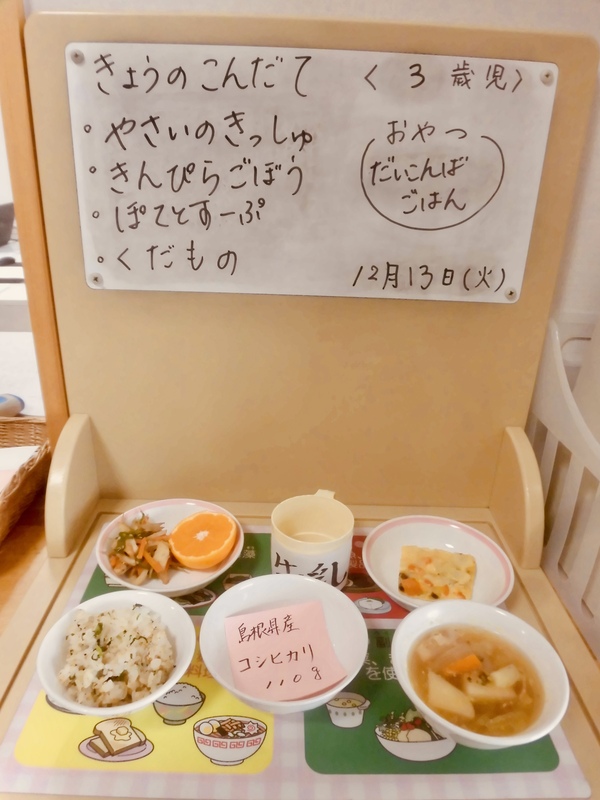 きょうのこんだて 〈 3 歳児〉
・やさいのきっしゅ
・きんぴらごぼう
・ぽてとすーぷ
・くだもの
おやつ
だいこんば
ごはん
12月13日(火)
牛乳
島根県産
コシヒカリ
110g
を使